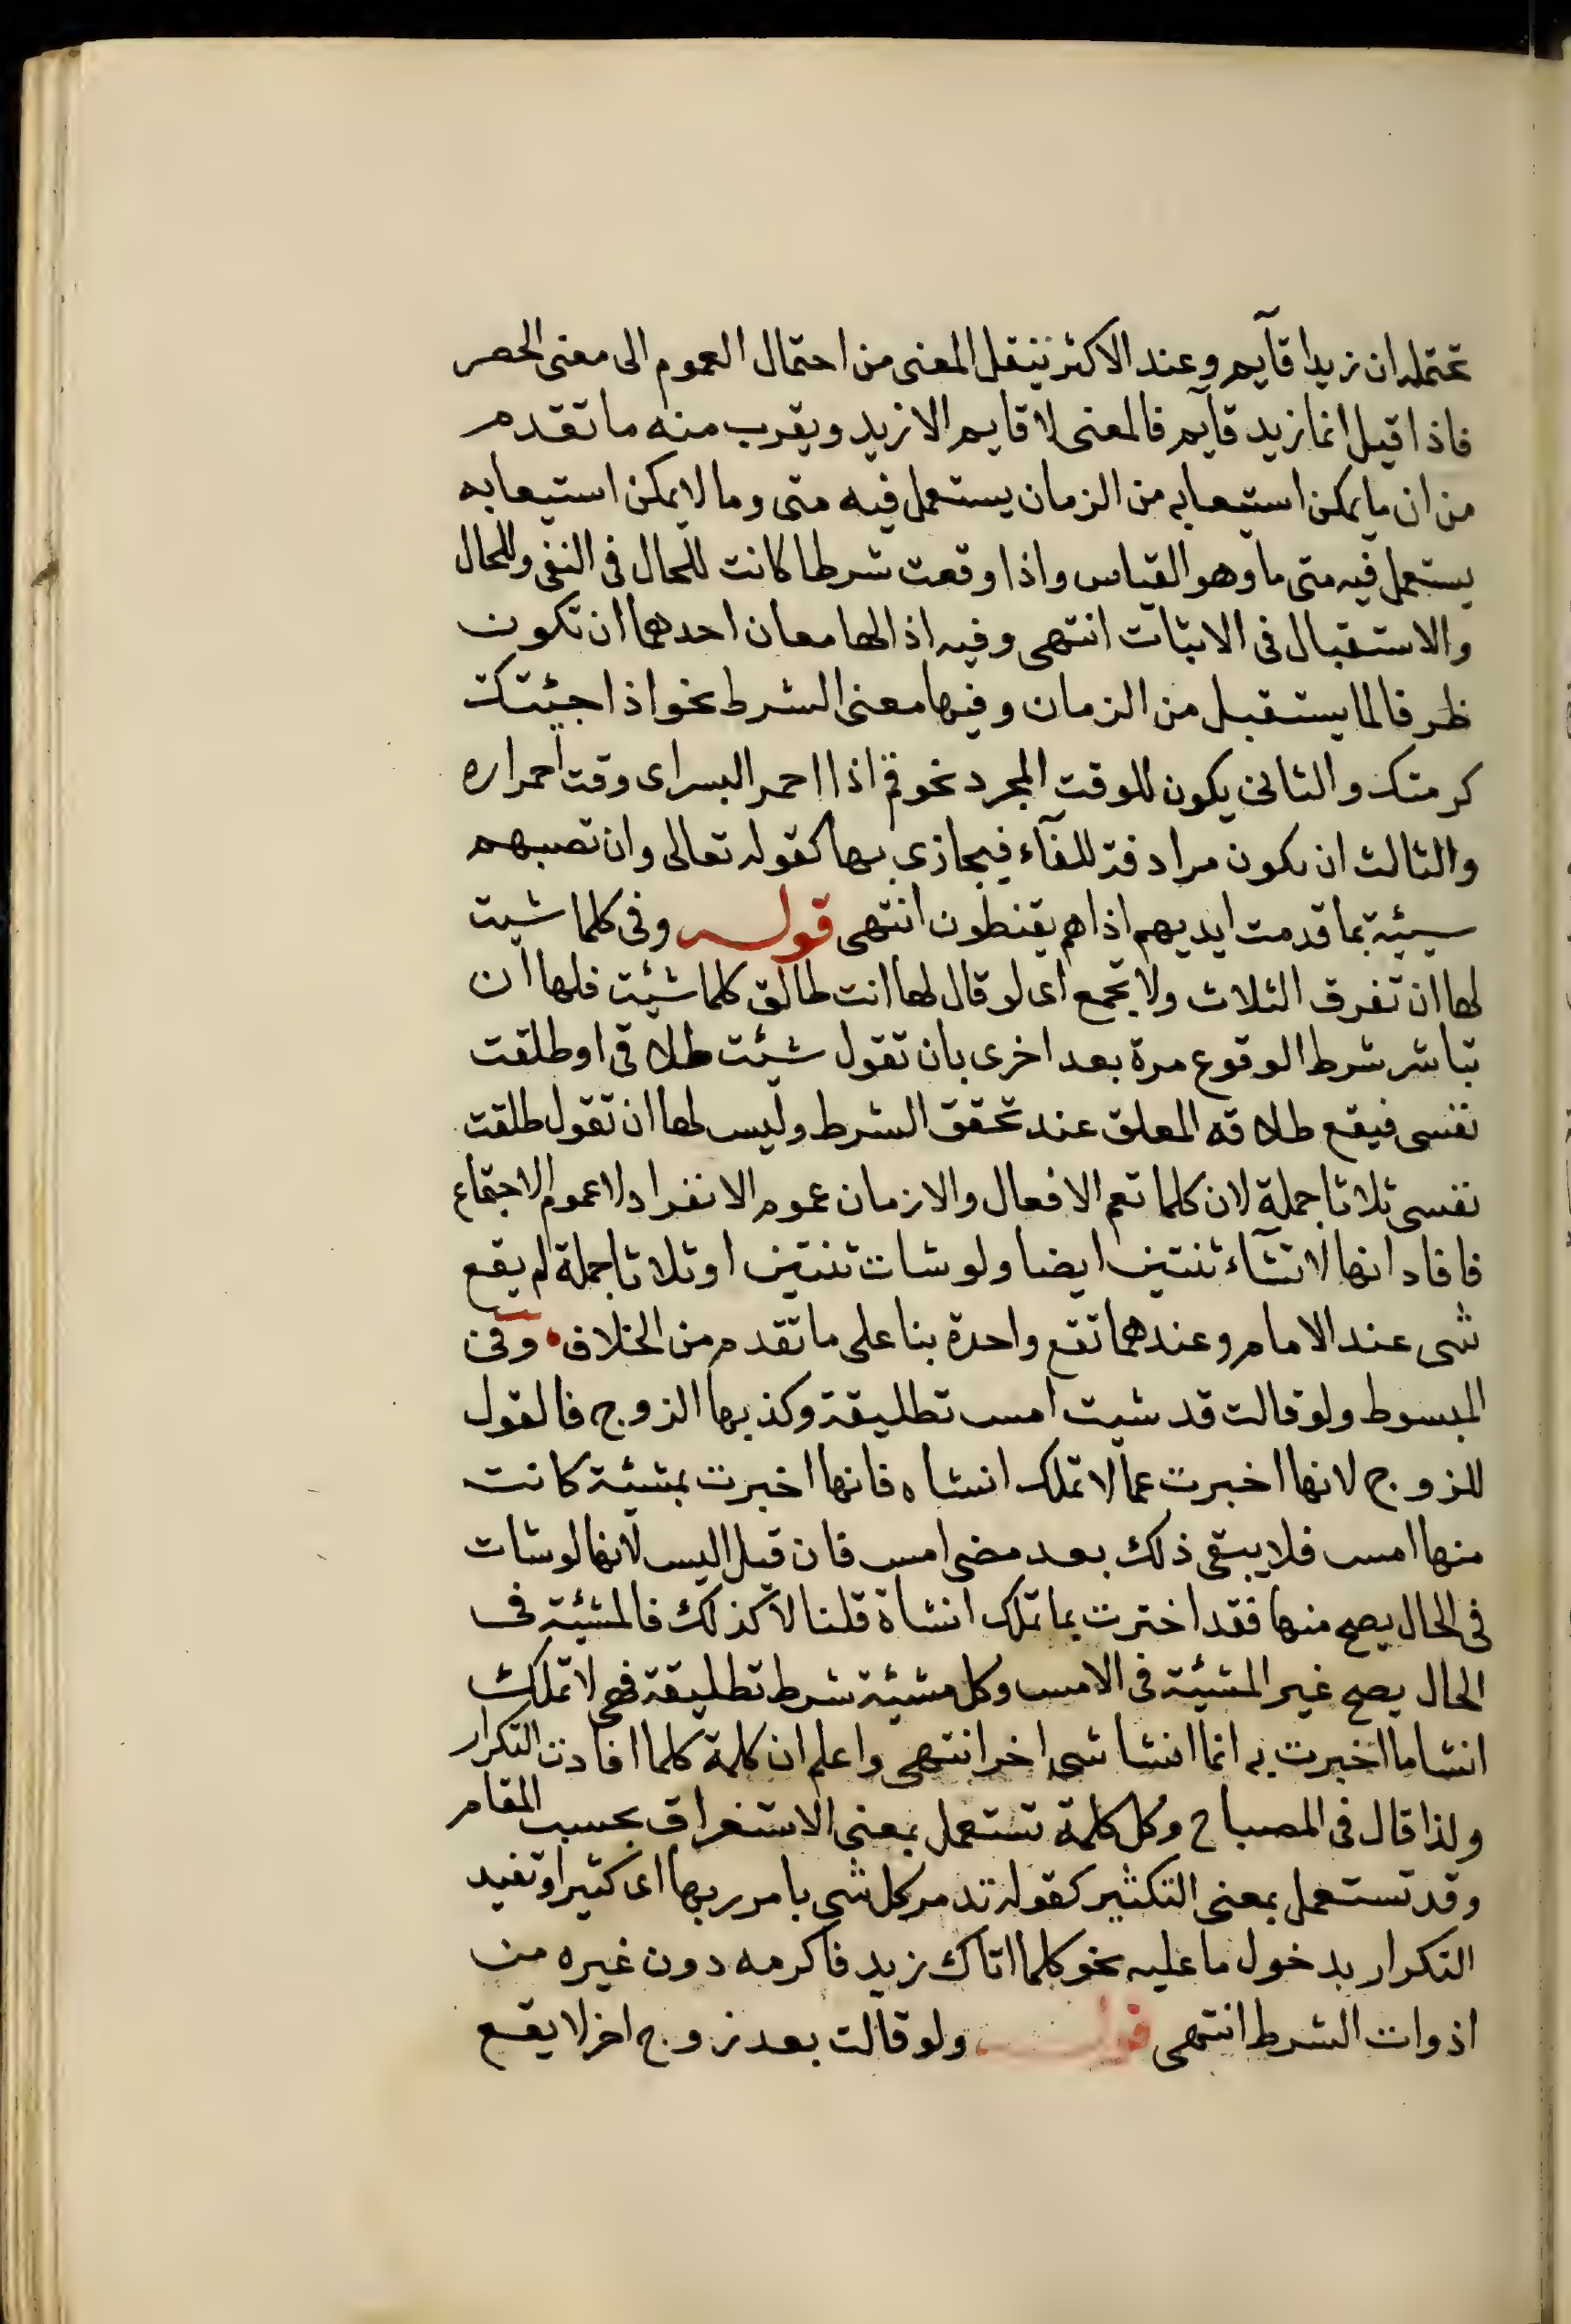 تحتمله ان زيدا قآيم وعند الاكثر ينتقل المعنى من احتمال العموم الى معنى الحصر
فاذا قيل انما زيد قآيم فالمعنى لا قايم الا زيد ويقرب منه ما تقدم
من ان ما يمكن استيعابه من الزمان يستعمل فيه متى وما لا يمكن استيعابه
يستعمل فيه متى ما وهو القياس واذا وقعت شرطا كانت للحال فى النفى وللحال
والاستقبال فى الاثبات انتهى وفيه اذا لها معان احدهما ان تكون
ظرفا لما يستقبل من الزمان وفيها معنى الشرط نحو اذا جيئتك
كرمتك والثانى يكون للوقت المجرد نحو قم اذا احمر البسر اى وقت احمراره
والثالث ان يكون مرادفة للفآء فيجازى بها كقوله تعالى وان تصبهم
سيئة بما قدمت ايديهم اذا هم يقنطون انتهى قوله وفى كلما شيت
لها ان تفرق الثلاث ولا تجمع اى لو قال لها انت طالق كلما شيئت فلها ان
تباشر شرط الوقوع مرة بعد اخرى بان تقول شئت طلاقى او طلقت
نفسى فيقع طلاقه المعلق عند تحقق الشرط وليس لها ان تقول طلقت
نفسى ثلاثا جملة لان كلما تعم الافعال والازمان عموم الانفراد لا عموم الاجتماع
فافاد انها لا تشآء ثنتين ايضا ولو شات ثنتين او ثلاثا جملة لم يقع
شى عند الامام وعندهما تقع واحدة بنا على ما تقدم من الخلاف وفى
المبسوط ولو قالت قد شيت امس تطليقة وكذبها الزوج فالقول
للزوج لانها اخبرت عما لا تملك انشاه فانها اخبرت بمشيئة كانت
منها امس فلا يبقى ذلك بعد مضى امس فان قيل اليس لانها لو شات
فى الحال يصح منها فقد اخترت بما تملك انشاة قلنا لا كذلك فالمشيئة فى
الحال يصح غير المشيئة فى الامس وكل مشيئة شرط تطليقة فهى لا تملك
انشا ما اخبرت به انما انشا شى اخر انتهى واعلم ان كلمة كلما افادت التكرار
ولذا قال فى المصباح وكل كلمة تستعمل بمعنى الاستغراق بحسب المقام
وقد تستعمل بمعنى التكثير كقوله تدمر كل شى بامر ربها اى كثيرا وتفيد
التكرار بدخول ما عليه نحو كلما اتاك زيد فاكرمه دون غيره من
اذوات الشرط انتهى قوله ولو قالت بعد زوج اخر لا يقع